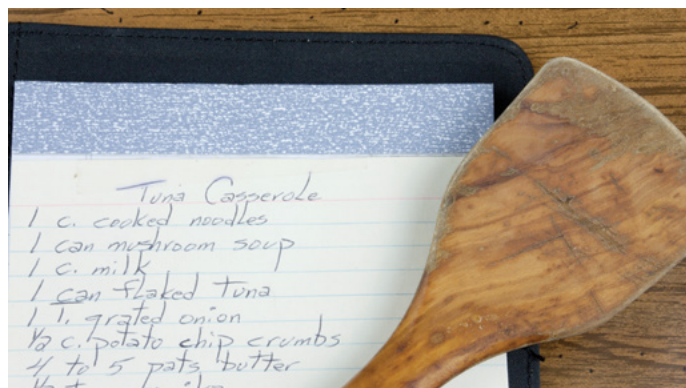 Tuna Casserole
1 c. cooked noodles
1 can mushroom soup
1 c. milk
1 can flaked tuna
1 T. grated onion
1/2 c. potato chip crumbs
4 to 5 pats butter